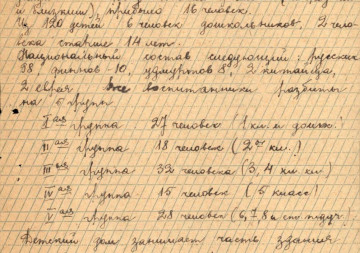 и близких), прибыло 16 человек.
Из 120 детей 6 человек дошкольников, 2 чело-
века старше 14 лет.
Национальный состав следующий: русских
98, финнов - 10, удмуртов 8, 2 китайца,
2 еврея Все воспитанники разбиты
на 5 групп
I ая группа 27 человек (1 кл. и дошк.)
II ая группа 18 человек (2ой кл.)
III ая группа 32 человека (3, 4 кл. кл)
IV ая группа 15 человек (5 класс)
V ая группа 28 человек (6, 7, 8 и
Детский дом занимает часть здания